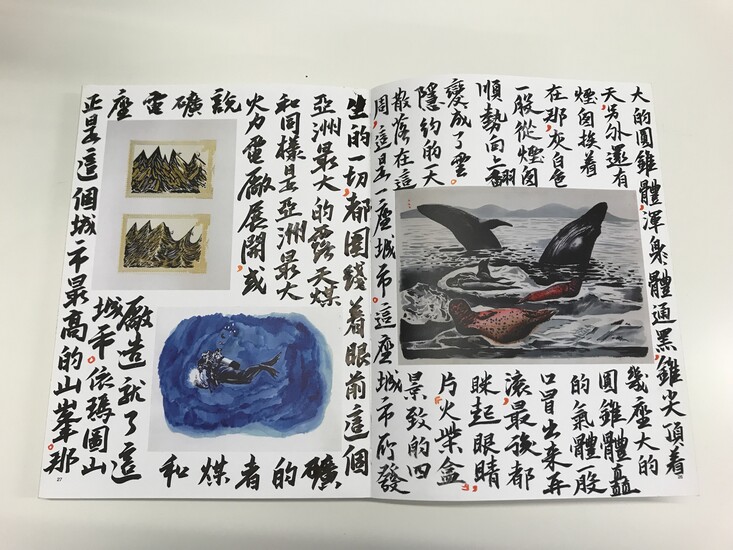 大的圓錐體,渾體通黑,錐尖頂着
天,另外還有幾座大的
煙囪挨着圓錐體矗
在那,灰白色的氣體一股
一股從煙囪口冒出來再
順勢向上翻滾,最後都
變成了雲。眯起眼睛
隱約的天片火柴盒
散落在這景致的四
周,這是一座城市。這座城市所發
生的一切,都圍繞着眼前這個
亞洲最大的露天煤礦
和同樣是亞洲最大的
火力電廠展開,或者
說煤
礦和
電廠造就了這
座城市。依瑪圖山
正是這個城市最高的山峯。那
27